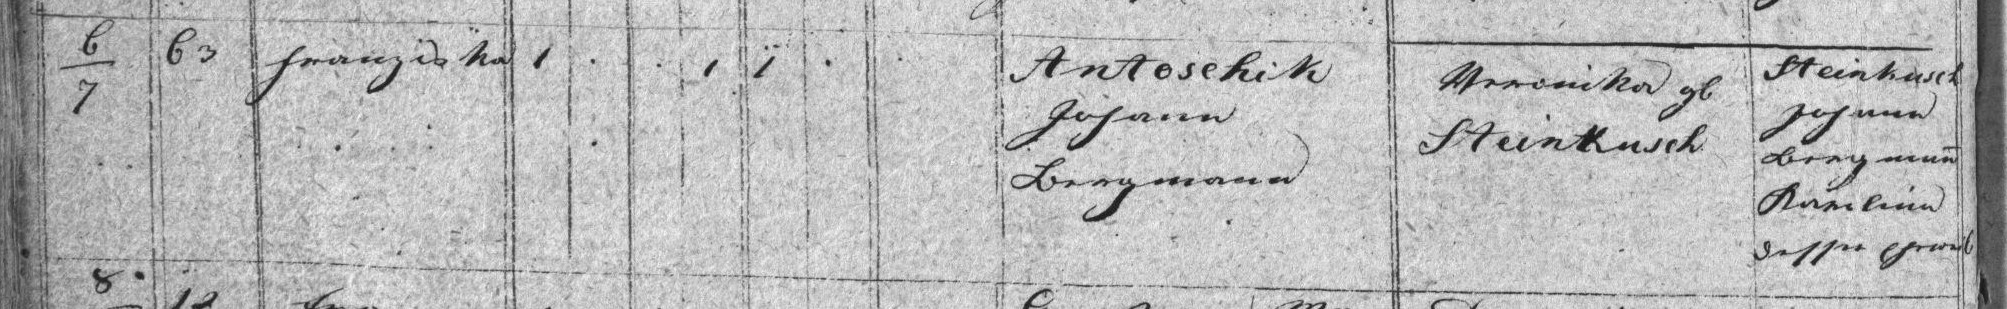 6/7 63 Franziska 1 . . 1 1 .
Antoschik
Johann
Bergmann
Veronika gb
Steinkusch
Steinkusch
Johann
Bergmann
Karolina
dessen Eheweib
8